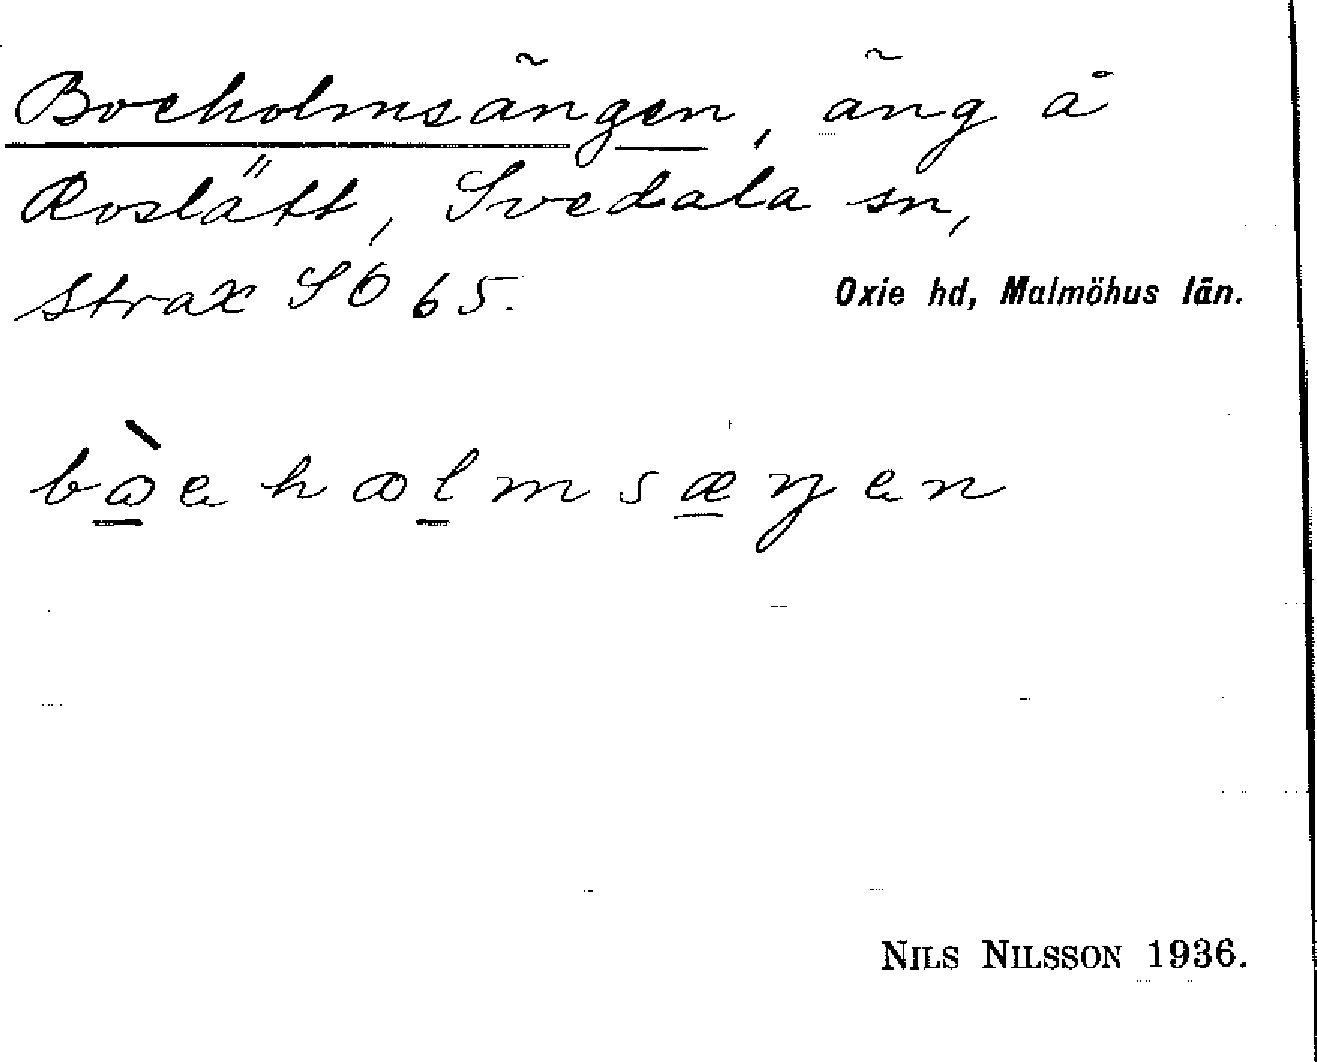 Boeholmsängen, äng å
Roslätt, Svedala sn,
strax SO 65.
Oxie hd, Malmöhus län.
bɷ̀e hɷlmsæŋen
NILS NILSSON 1936.